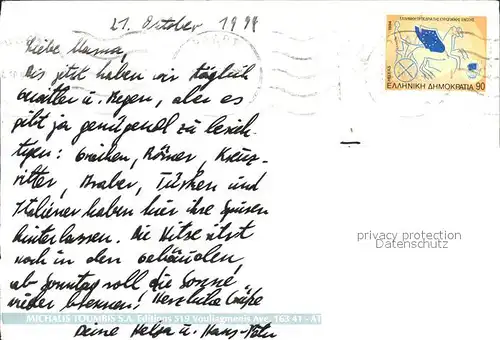 21. October 1994
Liebe Mama,
Bis jetzt haben wir täglich
Gewitter u. Regen, aber es
gibt ja genügend zu besich-
tigen: Griechen, Römer, Kreuz-
ritter, Araber, Türken und
Italiener haben hier ihre Spuren
hinterlassen. Die Hitze sitzt
noch in den Gebäuden,
ab Sonntag soll die Sonne
wieder brennen! Herzliche Grüße
Deine Helga u. Hans-Peter
MICHALIS TOUMBIS S.A. Editions 519 Vouliagmenis Ave. 163 41 - AT
ΕΛΛΗΝΙΚΗ ΔΗΜΟΚΡΑΤΙΑ 90
privacy protection
Datenschutz